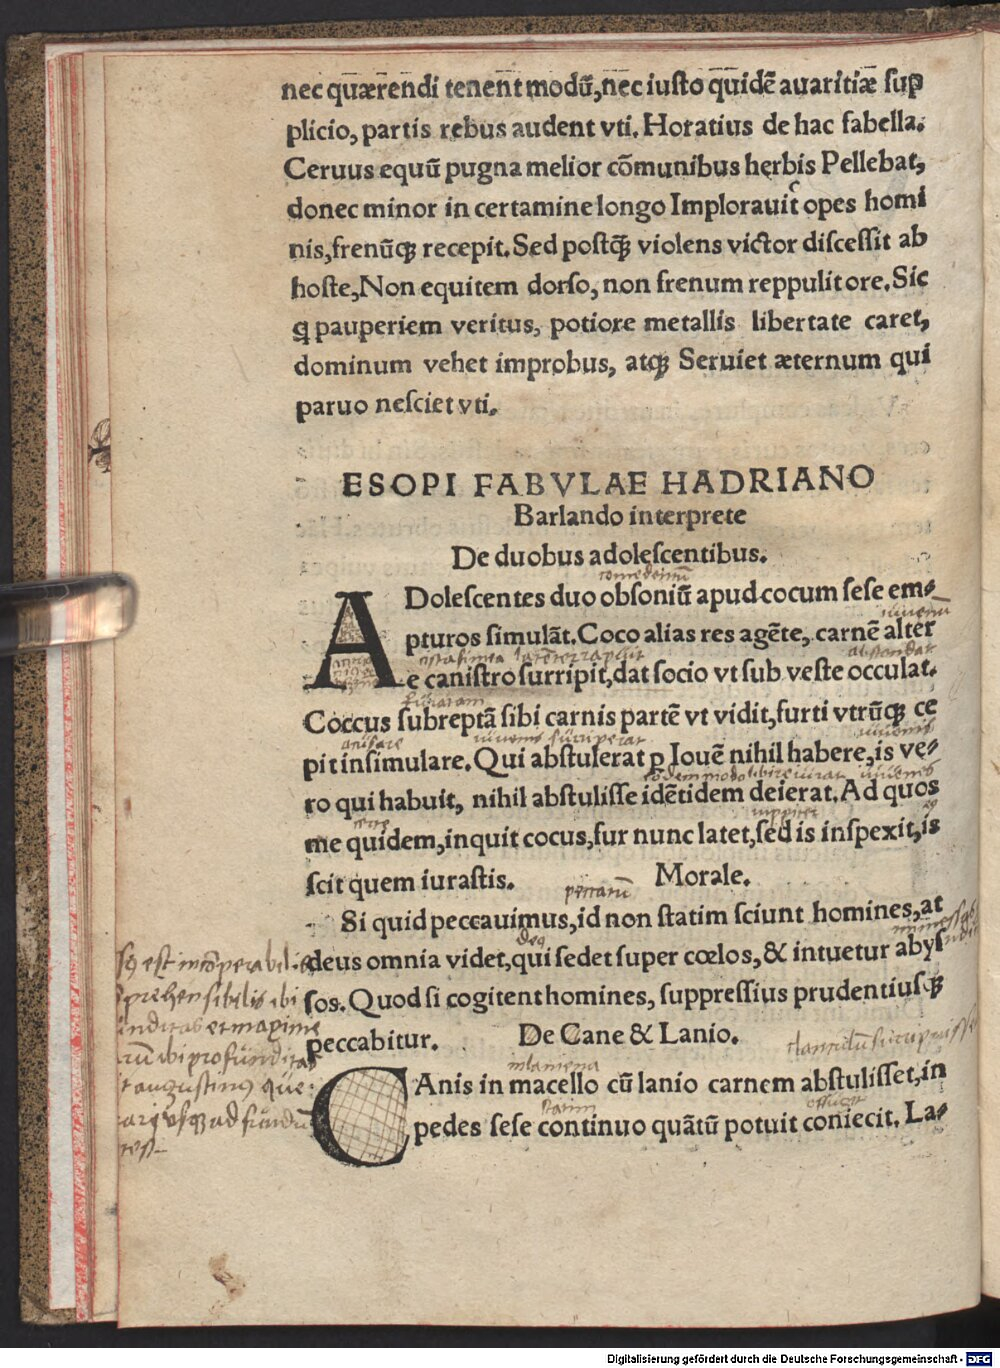 nec quærendi tenent modū, nec iusto quidē avaritiæ sup
plicio, partis rebus audent vti. Horatius de hac fabella.
Ceruus equū pugna melior cōmunibus herbis Pellebat,
donec minor in certamine longo Implorauit opes homi
nis, frenūq; recepit. Sed postq̄; violens victor discessit ab
hoste, Non equitem dorso, non frenum reppulit ore. Sic
q pauperiem veritus, potiore metallis libertate caret,
dominum vehet improbus, atq; Seruiet æternum qui
paruo nesciet vti.
ESOPI FABVLAE HADRIANO
Barlando interprete
De duobus adolescentibus.
ADolescentes duo obsoniū apud cocum sese em-
pturos simulāt. Coco alias res agēte, carnē alter
e canistro surripit, dat socio vt sub veste occulat.
Coccus subreptā sibi carnis partē vt vidit, furti vtrūq; ce
pit insimulare. Qui abstulerat p Iouē nihil habere, is ve-
ro qui habuit, nihil abstulisse idētidem deierat. Ad quos
me quidem, inquit cocus, fur nunc latet, sed is inspexit, is
scit quem iurastis. Morale.
Si quid peccauimus, id non statim sciunt homines, at
deus omnia videt, qui sedet super cœlos, & intuetur abys
sos. Quod si cogitent homines, suppressius prudentiusq;
peccabitur. De Cane & Lanio.
CAnis in macello cū lanio carnem abstulisset, in
pedes sese continuo quātū potuit coniecit. La-
Digitalisierung gefördert durch die Deutsche Forschungsgemeinschaft - DFG